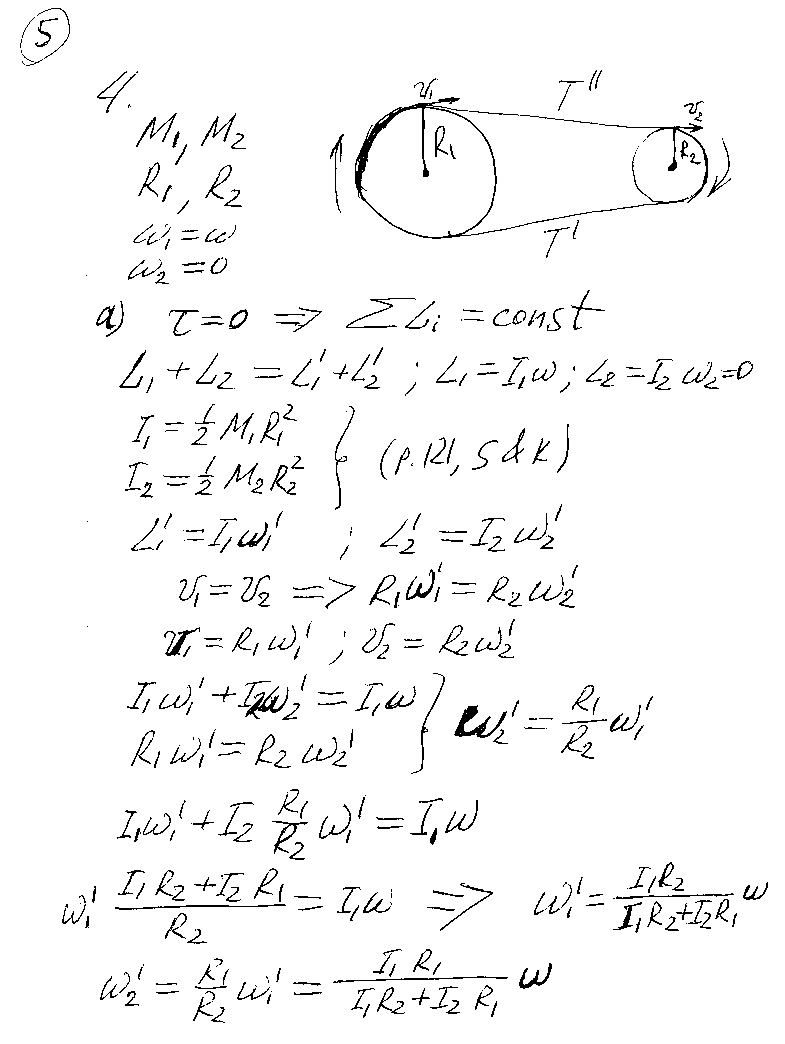 5
4.
M₁, M₂
R₁, R₂
ω₁ = ω
ω₂ = 0
v₁ T'' v₂
R₁ R₂
T'
a) τ = 0 => ΣLᵢ = const
L₁ + L₂ = L₁' + L₂' ; L₁ = I₁ω ; L₂ = I₂ω₂ = 0
I₁ = ½ M₁R₁²
I₂ = ½ M₂R₂² } (p. 121, S&K)
L₁' = I₁ω₁' ; L₂' = I₂ω₂'
v₁ = v₂ => R₁ω₁' = R₂ω₂'
v₁ = R₁ω₁' ; v₂ = R₂ω₂'
I₁ω₁' + I₂ω₂' = I₁ω
R₁ω₁' = R₂ω₂' } ω₂' = R₁/R₂ ω₁'
I₁ω₁' + I₂ R₁/R₂ ω₁' = I₁ω
ω₁' (I₁R₂ + I₂R₁)/R₂ = I₁ω => ω₁' = I₁R₂/(I₁R₂ + I₂R₁) ω
ω₂' = R₁/R₂ ω₁' = I₁R₁/(I₁R₂ + I₂R₁) ω